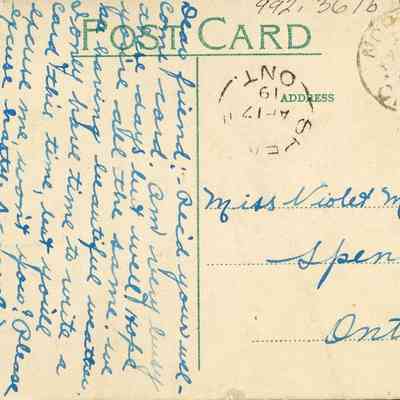 992.3610
POST CARD
Dear friend:- Rec'd your wel-
come card. Am very busy
these days but well. Hope
you're all the same. We
're having beautiful weather.
I only have time to write a
card this time, but you'll
excuse me, won't you? Please
ADDRESS
ONT.
19
AP 17
Miss Violet M
Spen
Ont